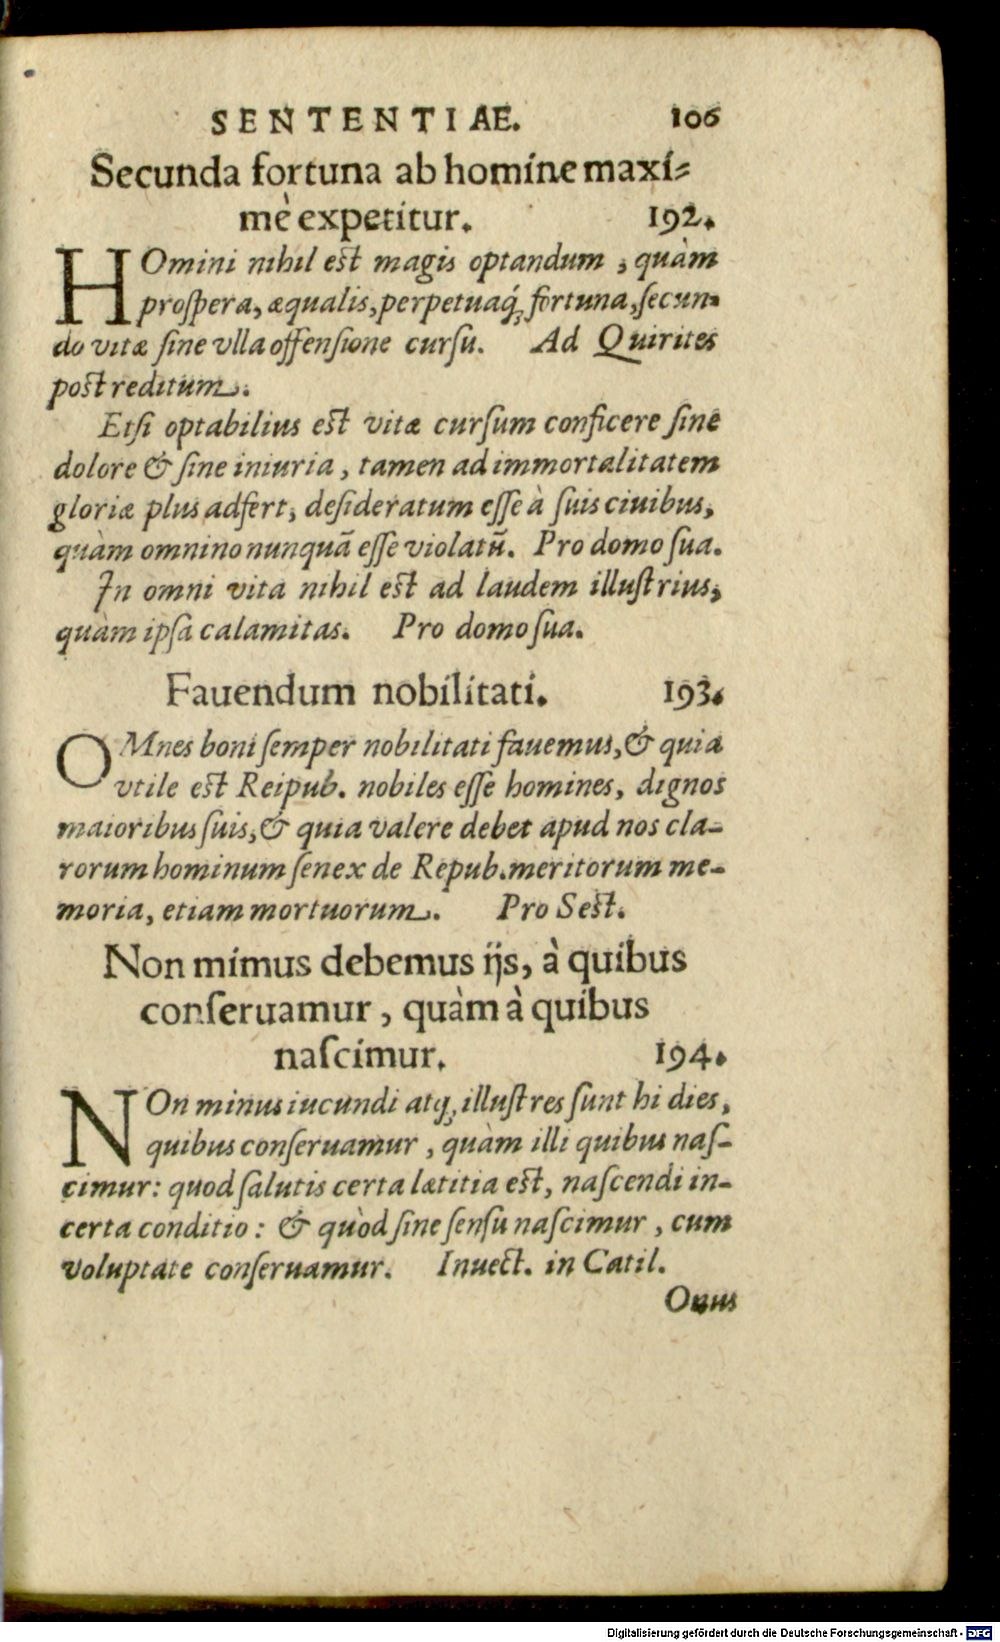 SENTENTIAE. 106
Secunda fortuna ab homine maxi⸗
mè expetitur. 192.
HOmini nihil est magis optandum, quàm
proſpera, æqualis, perpetuaq́; fortuna, ſecun-
do vitæ ſine vlla offenſione curſu. Ad Quirites
post reditum.
Etſi optabilius est vitæ curſum conficere ſine
dolore & ſine iniuria, tamen ad immortalitatem
gloriæ plus adfert, deſideratum eſſe à ſuis ciuibus,
quàm omnino nunquā eſſe violatū. Pro domo ſua.
In omni vita nihil est ad laudem illuſtrius,
quàm ipſa calamitas. Pro domo ſua.
Fauendum nobilitati. 193.
OMnes boni ſemper nobilitati fauemus, & quia
vtile est Reipub. nobiles eſſe homines, dignos
maioribus ſuis, & quia valere debet apud nos cla-
rorum hominum ſenex de Repub. meritorum me-
moria, etiam mortuorum. Pro Sest.
Non mimus debemus ijs, à quibus
conſeruamur, quàm à quibus
naſcimur. 194.
NOn minus iucundi atq; illuſtres ſunt hi dies,
quibus conſeruamur, quàm illi quibus naſ-
cimur: quod ſalutis certa lætitia est, naſcendi in-
certa conditio: & quòd ſine ſenſu naſcimur, cum
voluptate conſeruamur. Inuect. in Catil.
Onus
Digitalisierung gefördert durch die Deutsche Forschungsgemeinschaft - DFG